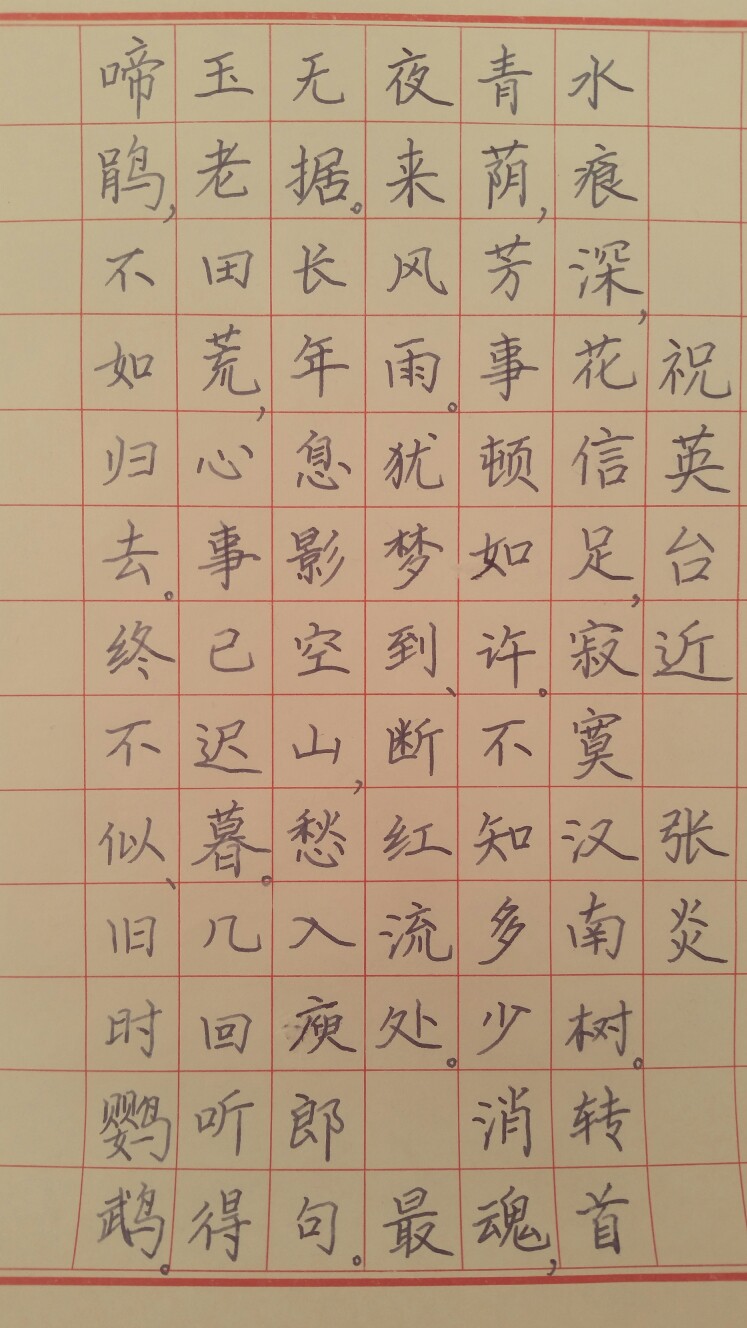 祝英台近 张炎
水痕深，花信足，寂寞汉南树。转首
青荫，芳事顿如许。不知多少消魂，
夜来风雨。犹梦到、断红流处。 最
无据。长年息影空山，愁入瘐郎句。
玉老田荒，心事已迟暮。几回听得
啼鹃，不如归去。终不似、旧时鹦鹉。